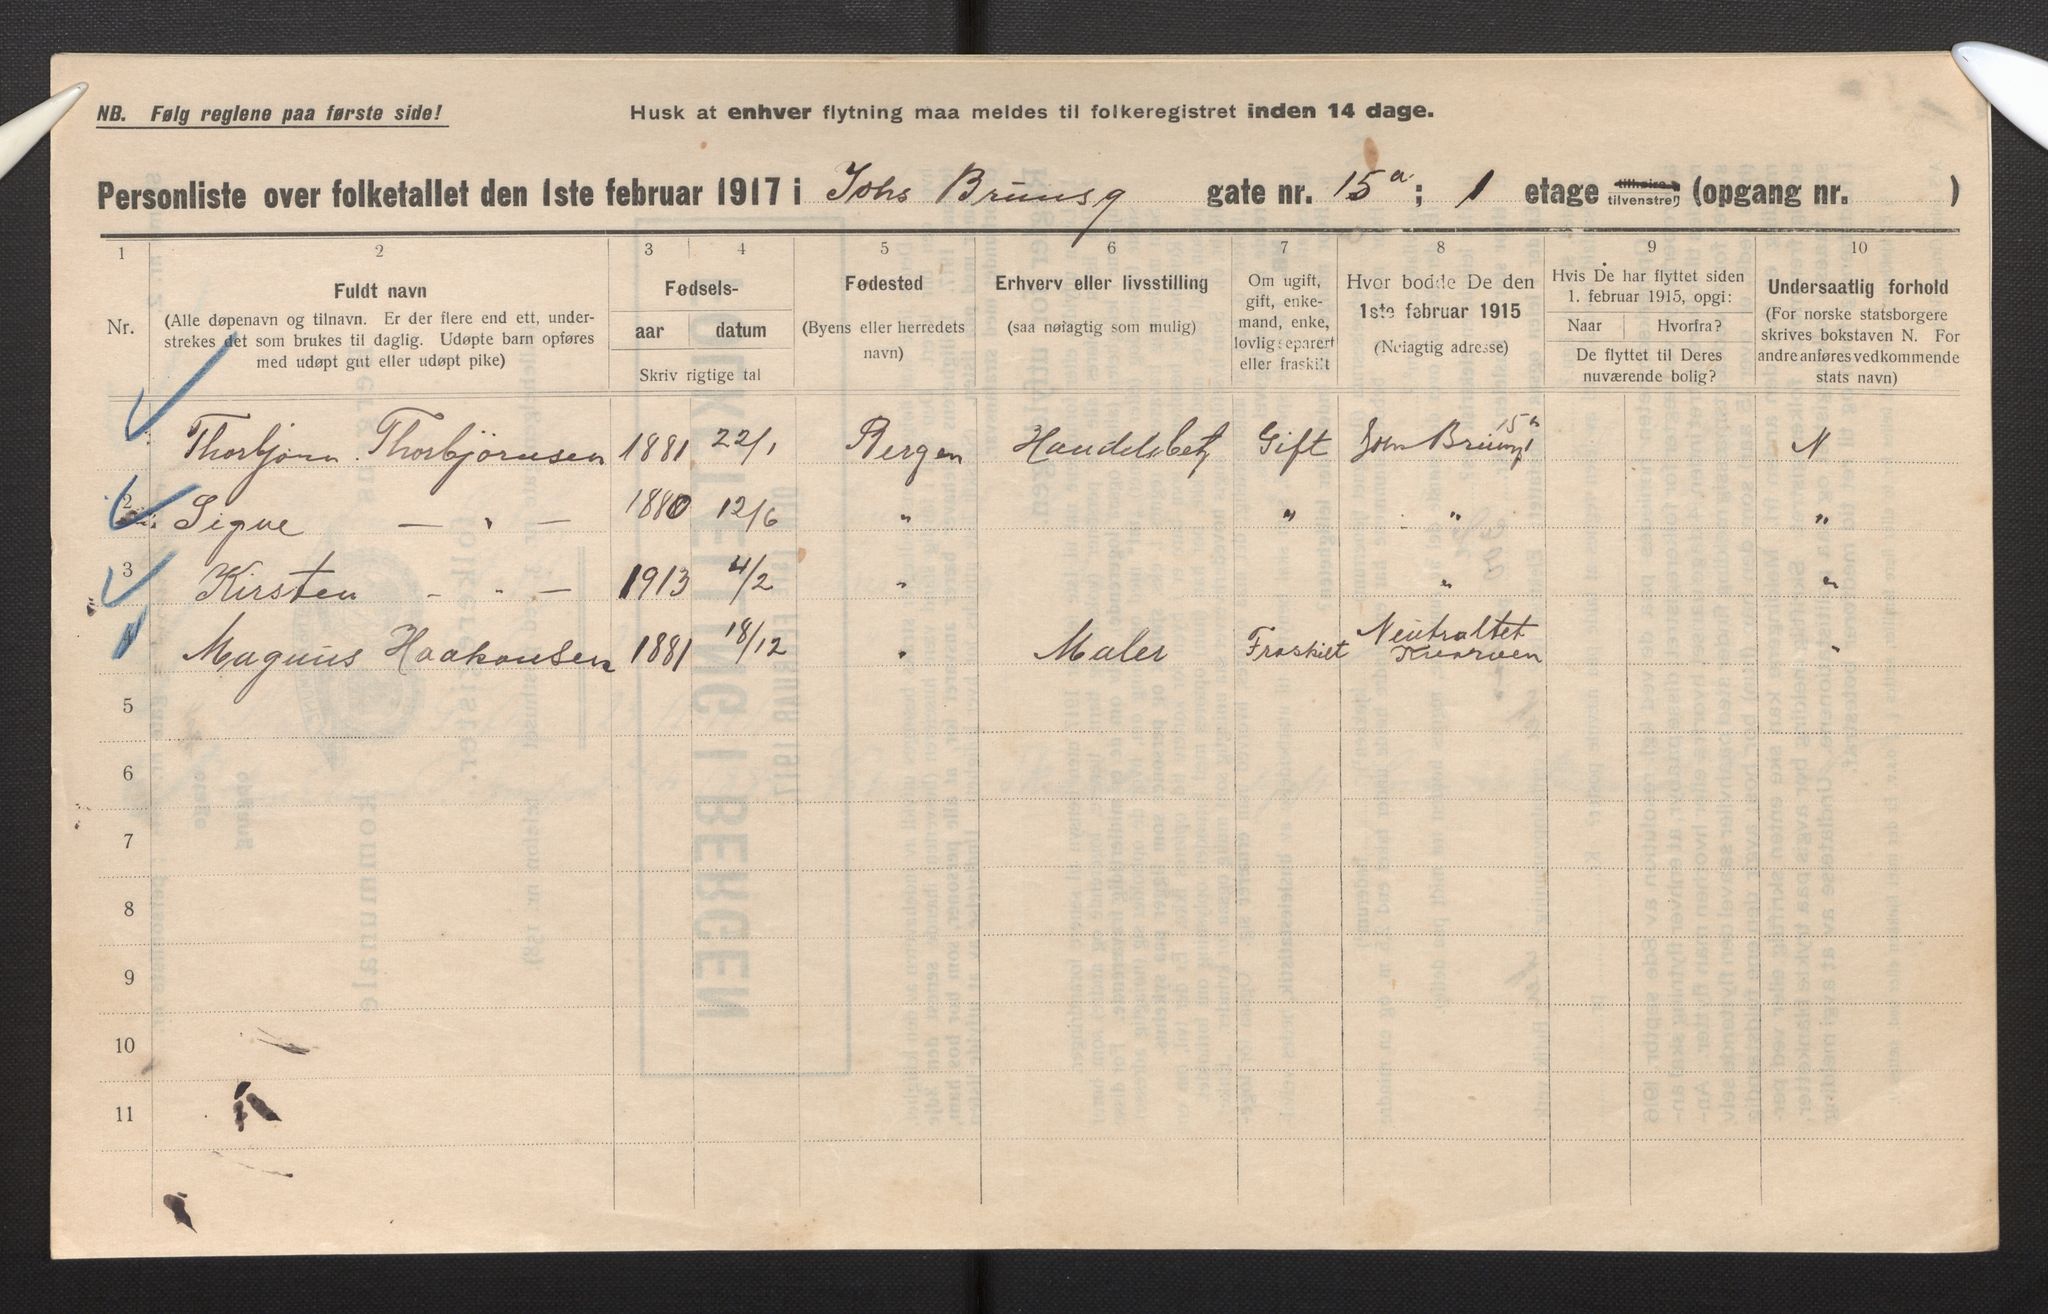 NB. Følg reglene paa første side! Husk at enhver flytning maa meldes til folkeregistret inden 14 dage.
Personliste over folketallet den 1ste februar 1917 i Johs Brunsg gate nr. 15a; 1 etage tilhøire tilvenstre) (opgang nr. )
1 2 3 4 5 6 7 8 9 10
Nr.
Fuldt navn
(Alle døpenavn og tilnavn. Er der flere end ett, under-
strekes det som brukes til daglig. Udøpte barn opføres
med udøpt gut eller udøpt pike)
Fødsels-
aar datum
Skriv rigtige tal
Fødested
(Byens eller herredets
navn)
Erhverv eller livsstilling
(saa nøiagtig som mulig)
Om ugift,
gift, enke-
mand, enke,
lovlig separert
eller fraskilt
Hvor bodde De den
1ste februar 1915
(Nøiagtig adresse)
Hvis De har flyttet siden
1. februar 1915, opgi:
Naar Hvorfra?
De flyttet til Deres
nuværende bolig?
Undersaatlig forhold
(For norske statsborgere
skrives bokstaven N. For
andre anføres vedkommende
stats navn)
Thorbjørn Thorbjörnsen 1881 22/1 Bergen Handelsbetj Gift John Brunsg 15a N
2 Signe — " — 1880 12/6 " " " "
3 Kirsten - " - 1913 4/2 " " "
4 Magnus Haakonsen 1881 18/12 " Maler Fraskilt Neutraltet "
5
6
7
8
9
10
11